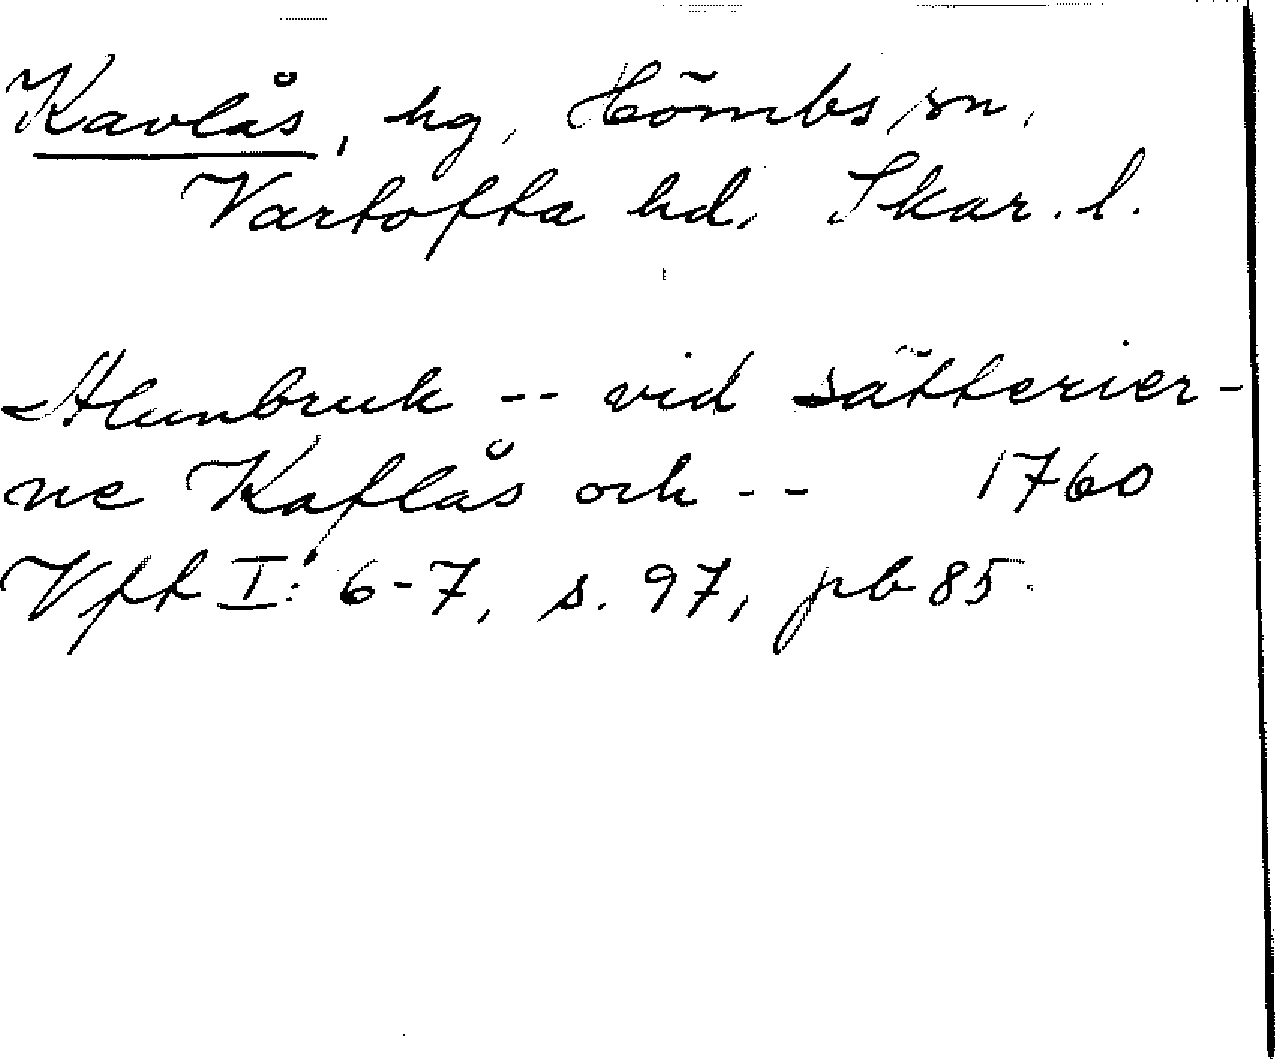 Kavlås, hg, Hömbs sn,
Vartofta hd, Skar. l.
Alunbruk -- vid sätterier-
ne Kaflås och -- 1760
Vfft I: 6-7, s. 97, pb 85.